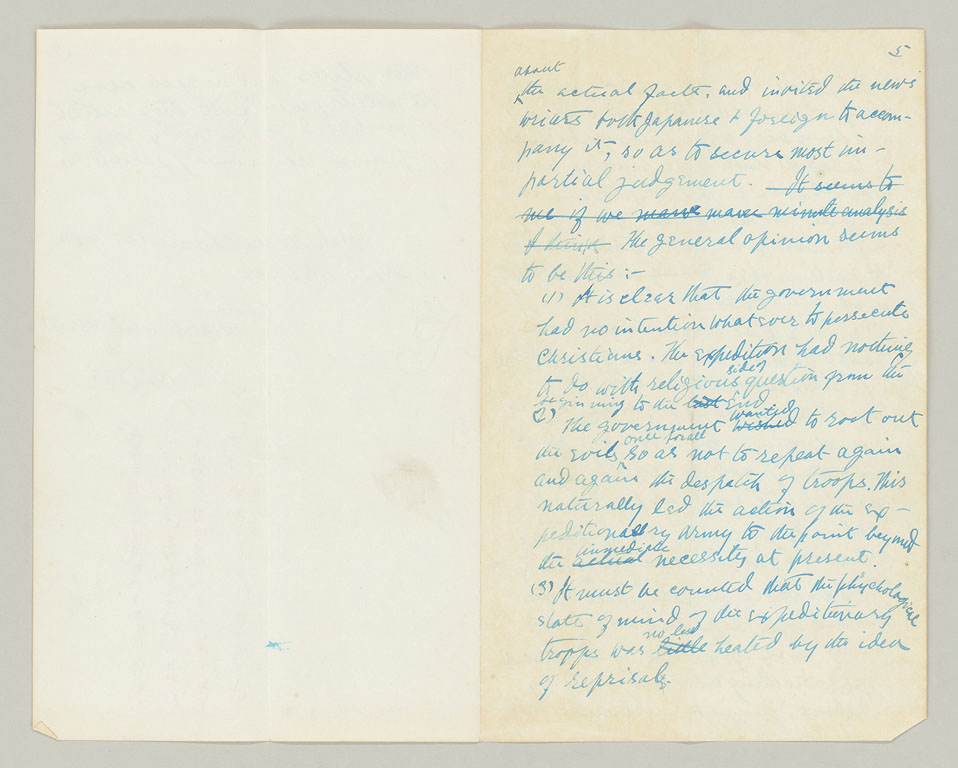 5
about
the actual facts, and invited the news
writers both Japanese & foreign to accom-
pany it, so as to secure most im-
partial judgement. It seems to
me if we make more minute analysis
I think The general opinion seems
to be this :-
(1) It is clear that the government
had no intention whatsoever to persecute
Christians. The expedition had nothing
to do with religious question from the
side of
beginning to the last end
wanted
(2) The government wished to root out
once for all
the evils so as not to repeat again
and again the despatch of troops. This
naturally led the action of the ex-
peditionary army to the point beyond
immediate
the actual necessity at present.
(3) It must be counted that the phychological
state of mind of the expeditionary
no less
troops was little heated by the idea
of reprisals.